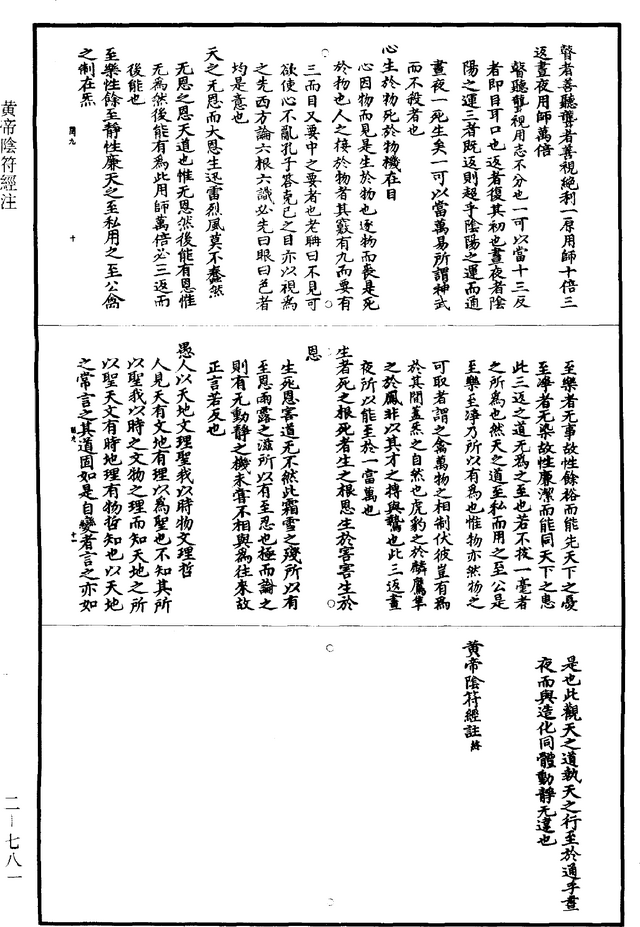 瞽者善聽聾者善視絕利一原用師十倍三
返晝夜用師萬倍
瞽聽聾視用志不分也一可以當十三反
者即目耳口也返者復其初也晝夜者陰
陽之運三者既返則超乎陰陽之運而通
晝夜一死生矣一可以當萬易所謂神武
而不殺者也
心生於物死於物機在目
心因物而見是生於物也逐物而喪是死
於物也人之接於物者其竅有九而要有
三而目又要中之要者也老聃曰不見可
欲使心不亂孔子答克己之目亦以視為
之先西方論六根六識必先曰眼曰色者
均是意也
天之无恩而大恩生迅雷烈風莫不蠢然
无恩之恩天道也惟无恩然後能有恩惟
无為然後能有為此用師萬倍必三返而
後能也
至樂性餘至靜性廉天之至私用之至公禽
之制在炁
閏九
十
至樂者无事故性餘裕而能先天下之憂
至淨者无染故性廉潔而能同天下之患
此三返之道无為之至也若不拔一毫者
之所為也然天之道至私而用之至公是
至樂至淨乃所以有為也惟物亦然物之
可取者謂之禽萬物之相制伏彼豈有為
於其間蓋炁之自然也虎豹之於麟鷹隼
之於鳳非以其才之摶與鷙也此三返晝
夜所以能至於一當萬也
生者死之根死者生之根恩生於害害生於
恩
生死恩害道无不然此霜雪之殘所以有
至恩雨露之滋所以有至忍也極而論之
則有无動靜之機未嘗不相與為往來故
正言若反也
愚人以天地文理聖我以時物文理哲
人見天有文地有理以為聖也不知其所
以聖我以時之文物之理而知天地之所
以聖天文有時地理有物哲知也以天地
之常言之其道固如是自變者言之亦如
十一
是也此觀天之道執天之行至於通乎晝
夜而與造化同體動靜无違也
黄帝陰符經註終
黄帝陰符經注
二—七八一